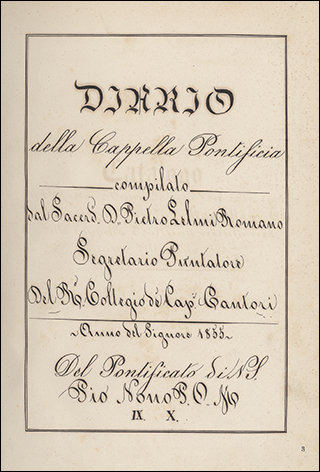 DIARIO
della Cappella Pontificia
compilato
dal Sacerd. D. Pietro Lelmi Romano
Segretario Puntatore
Del R. Collegio de' Capp. Cantori
Anno del Signore 1855
Del Pontificato di N. S.
Pio Nono P. O. M
IX. X.
3